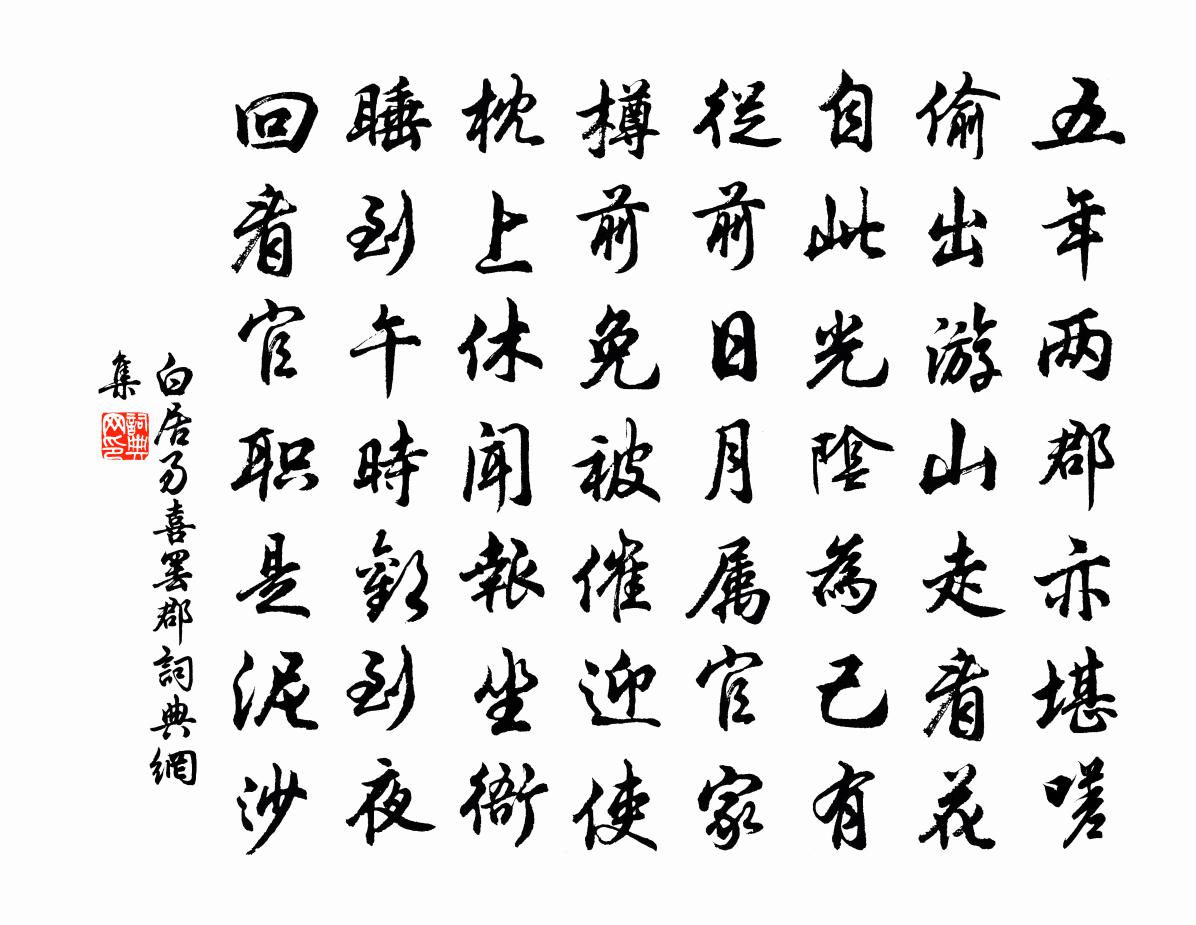 五年两郡亦堪嗟
偷出游山走看花
自此光陰為己有
従前日月属官家
樽前免被催迎使
枕上休聞報坐衙
睡到午時歡到夜
回看官职是泥沙
白居易喜罢郡詞典網
集
詞典网印